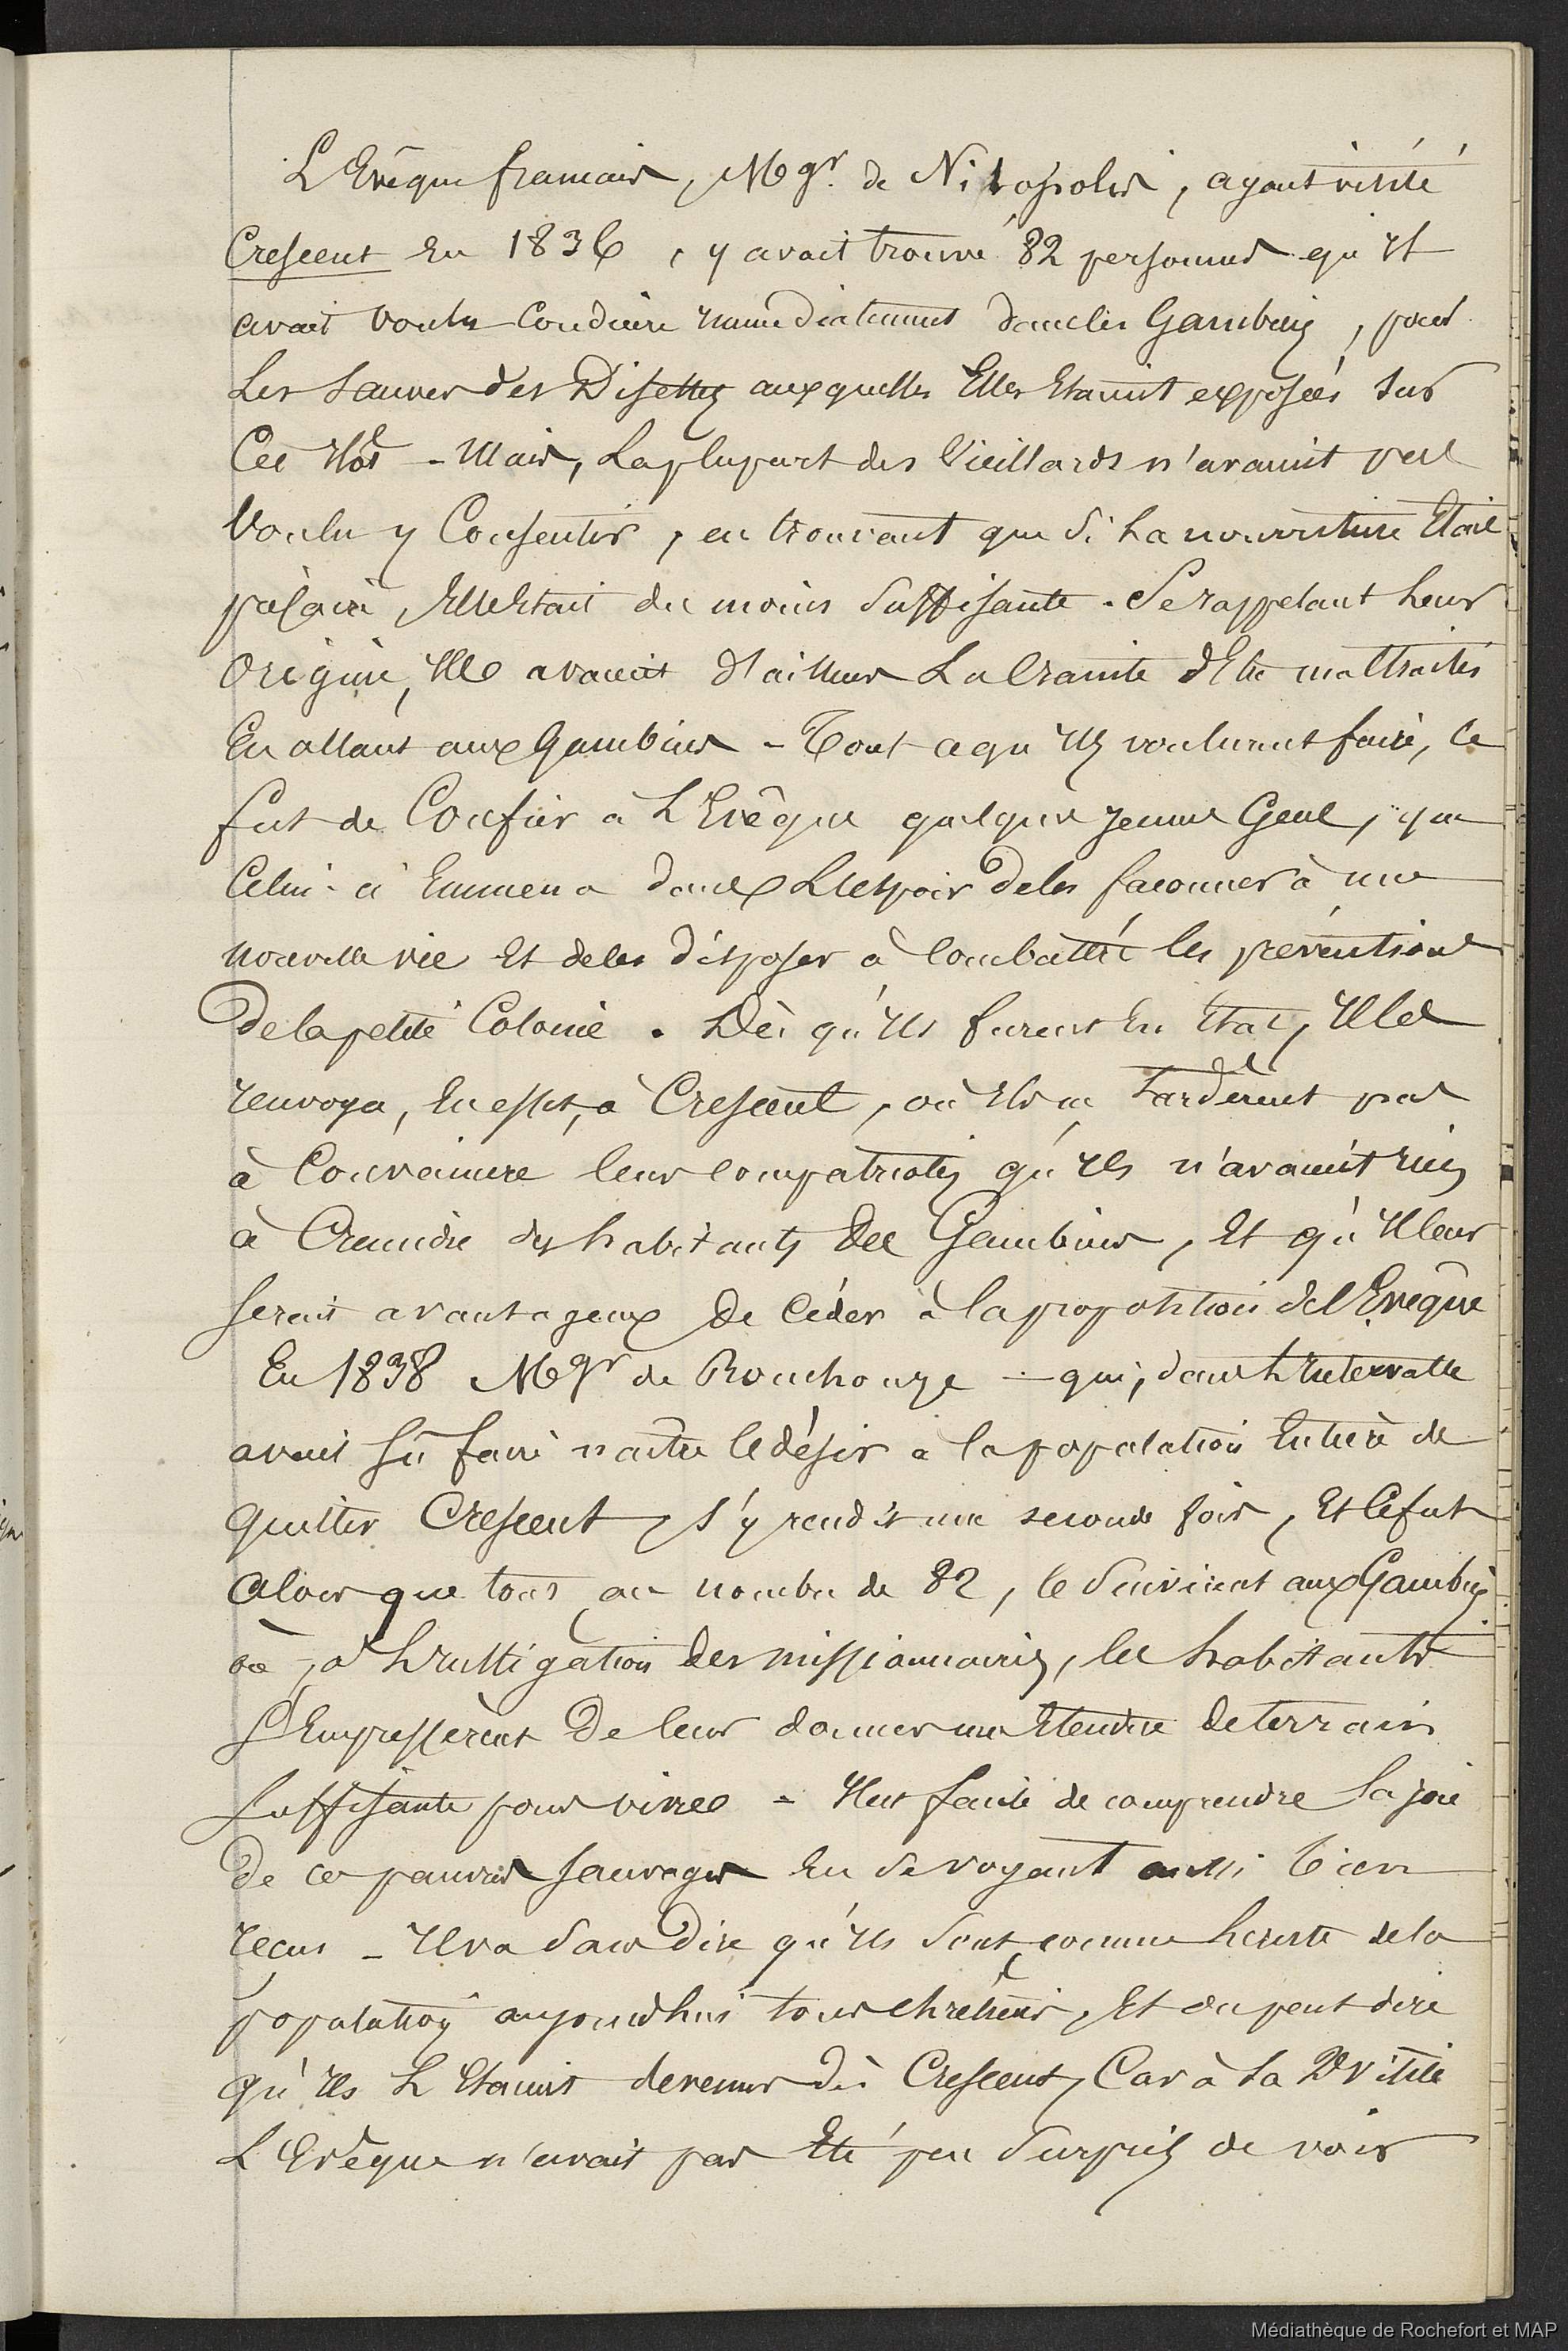 L'Evêque français, Mgr. de Nilopolis, ayant visité
Crescent en 1836, y avait trouvé 82 personnes qu'il
avait voulu conduire immédiatement dans les Gambiers, pour
les sauver des Disettes auxquelles Elles Etaient exposées sur
Cet Ilôt - Mais, La plupart des Vieillards n'avaient pas
Voulu y Consentir, en trouvant que si La nourriture Etait
, Elle Etait du moins suffisante. Se rappelant leur
Origine, Ils avaient d'ailleurs La Crainte d'Etre maltraités
En allant aux Gambiers - Tout ce qu'Ils voulurent faire, ce
fut de Confier à L'Evêque quelques jeunes Gens, que
Celui-ci Emmena dans L'Espoir de les façonner à une
nouvelle vie Et de les disposer à combattre les préventions
De la petite Colonie. Dès qu'Ils furent En Etat, Il les
renvoya, En effet, à Crescent, où Ils ne tardèrent pas
à Convaincre leurs compatriotes qu'Ils n'avaient rien
à Craindre des habitants des Gambiers, Et qu'Il leur
serait avantageux de céder à la proposition de l'Evêque
En 1838 Mgr de Rouchouze - qui, dans L'Intervalle
avait sû faire naître le désir à la population Entière de
quitter Crescent, s'y rendit une seconde fois, Et ce fut
alors que tous, au nombre de 82, le suivirent aux Gambiers
où, à L'Instigation des missionnaires, les habitants
s'Empressèrent De leur donner une Etendue de terrain
suffisante pour vivre - Il est facile de comprendre la joie
De ces pauvres sauvages En se voyant aussi bien
reçus - Il va sans Dire qu'Ils sont, comme Le reste de la
population aujourd'hui tous chrétiens, Et on peut dire
qu'Ils L'Etaient devenus dès Crescent, Car à sa 2e Visite
L'Evêque n'avait pas Eté peu surpris de voir
Médiathèque de Rochefort et MAP